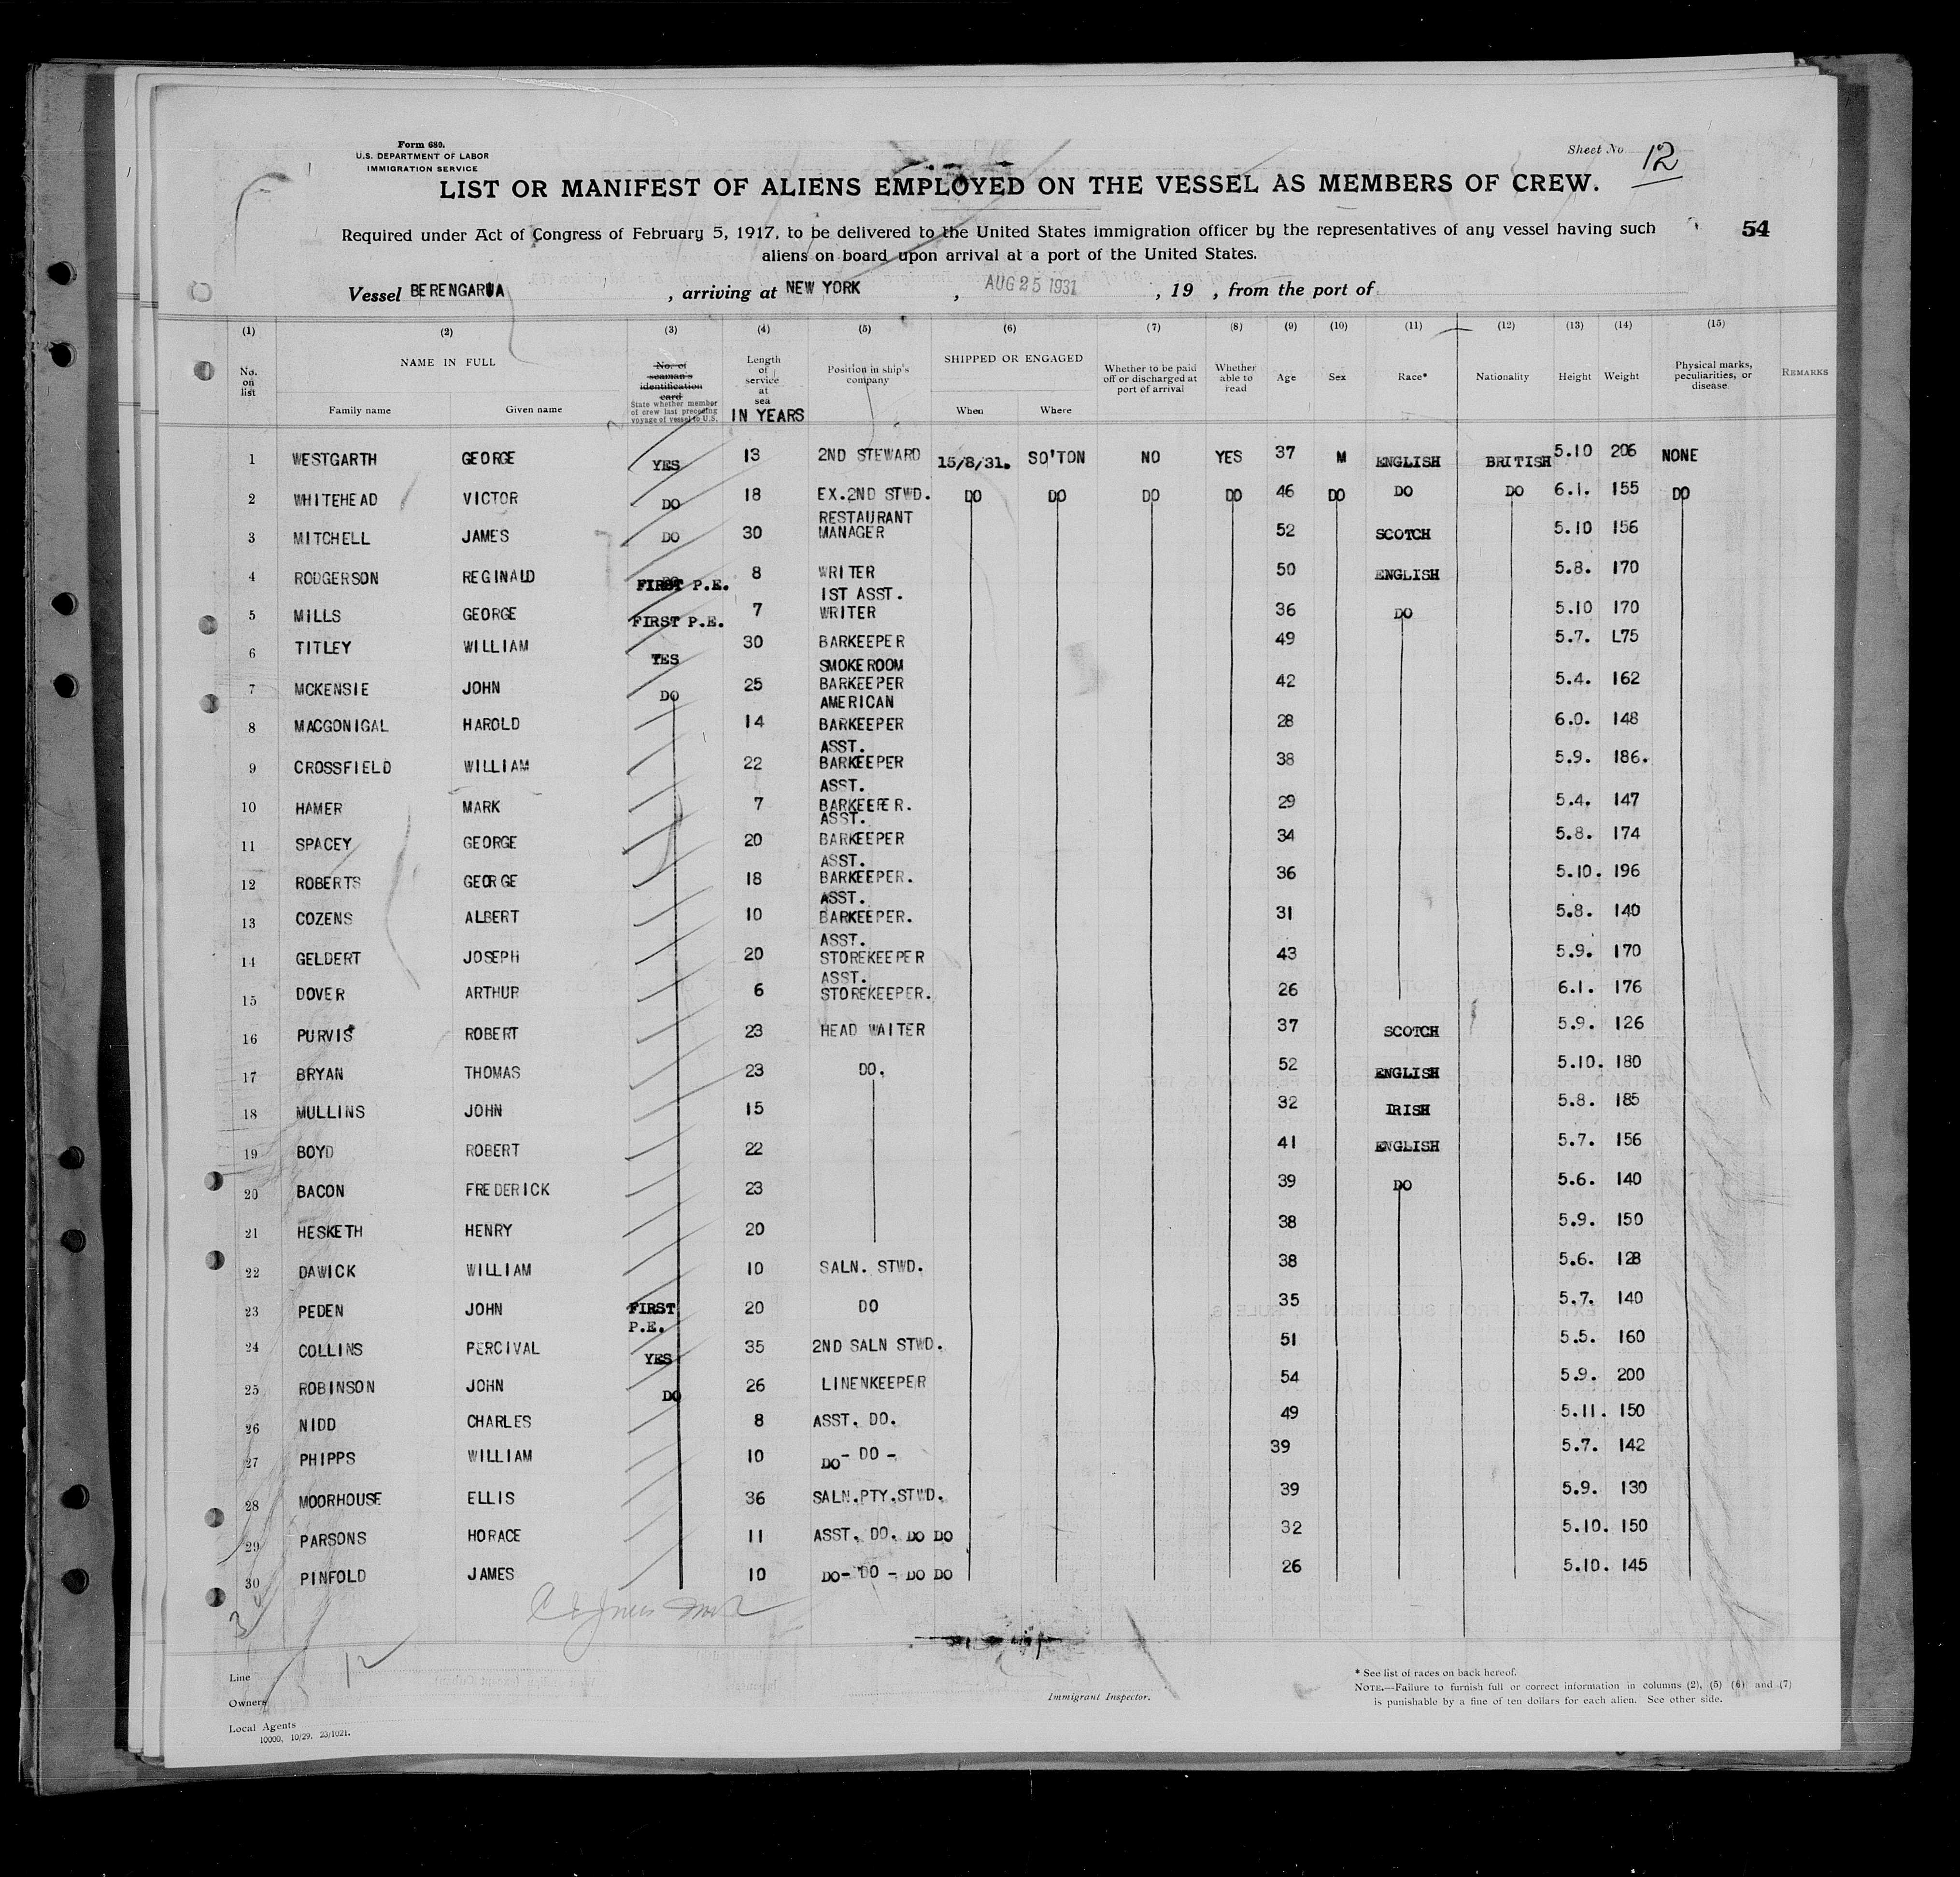 Form 680.
U.S. DEPARTMENT OF LABOR
IMMIGRATION SERVICE
Sheet No 12
LIST OR MANIFEST OF ALIENS EMPLOYED ON THE VESSEL AS MEMBERS OF CREW.
Required under Act of Congress of February 5, 1917, to be delivered to the United States immigration officer by the representatives of any vessel having such
54
aliens on board upon arrival at a port of the United States.
Vessel BERENGARIA , arriving at NEW YORK , AUG 25 1931 , 19 , from the port of
(1) (2) (3) (4) (5) (6) (7) (8) (9) (10) (11) (12) (13) (14) (15)
No. on list NAME IN FULL Family name Given name No. of seaman's identification card State whether member of crew last preceding voyage of vessel to U.S. Length of service at sea IN YEARS Position in ship's company SHIPPED OR ENGAGED When Where Whether to be paid off or discharged at port of arrival Whether able to read Age Sex Race* Nationality Height Weight Physical marks, peculiarities, or disease REMARKS
1 WESTGARTH GEORGE YES 13 2ND STEWARD 15/8/31. SO'TON NO YES 37 M ENGLISH BRITISH 5.10 206 NONE
2 WHITEHEAD VICTOR DO 18 EX.2ND STWD. DO DO DO DO 46 DO DO DO 6.1. 155 DO
3 MITCHELL JAMES DO 30 RESTAURANT MANAGER 52 SCOTCH 5.10 156
4 RODGERSON REGINALD FIRST P.E. 8 WRITER 50 ENGLISH 5.8. 170
5 MILLS GEORGE FIRST P.E. 7 1ST ASST. WRITER 36 DO 5.10 170
6 TITLEY WILLIAM YES 30 BARKEEPER 49 5.7. L75
7 MCKENSIE JOHN DO 25 SMOKEROOM BARKEEPER 42 5.4. 162
8 MACGONIGAL HAROLD 14 AMERICAN BARKEEPER 28 6.0. 148
9 CROSSFIELD WILLIAM 22 ASST. BARKEEPER 38 5.9. 186.
10 HAMER MARK 7 ASST. BARKEEPER. 29 5.4. 147
11 SPACEY GEORGE 20 ASST. BARKEEPER 34 5.8. 174
12 ROBERTS GEORGE 18 ASST. BARKEEPER. 36 5.10. 196
13 COZENS ALBERT 10 ASST. BARKEEPER. 31 5.8. 140
14 GELDERT JOSEPH 20 ASST. STOREKEEPER 43 5.9. 170
15 DOVER ARTHUR 6 ASST. STOREKEEPER. 26 6.1. 176
16 PURVIS ROBERT 23 HEAD WAITER 37 SCOTCH 5.9. 126
17 BRYAN THOMAS 23 DO. 52 ENGLISH 5.10. 180
18 MULLINS JOHN 15 32 IRISH 5.8. 185
19 BOYD ROBERT 22 41 ENGLISH 5.7. 156
20 BACON FREDERICK 23 39 DO 5.6. 140
21 HESKETH HENRY 20 38 5.9. 150
22 DAWICK WILLIAM 10 SALN. STWD. 38 5.6. 128
23 PEDEN JOHN FIRST P.E. 20 DO 35 5.7. 140
24 COLLINS PERCIVAL YES 35 2ND SALN STWD. 51 5.5. 160
25 ROBINSON JOHN DO 26 LINENKEEPER 54 5.9. 200
26 NIDD CHARLES 8 ASST. DO. 49 5.11. 150
27 PHIPPS WILLIAM 10 DO- DO - 39 5.7. 142
28 MOORHOUSE ELLIS 36 SALN.PTY.STWD. 39 5.9. 130
29 PARSONS HORACE 11 ASST. DO. DO DO 32 5.10. 150
30 PINFOLD JAMES 10 DO- DO - DO DO 26 5.10. 145
12
Line
Owners
Local Agents
10000, 10/29. 23/1021.
Immigrant Inspector.
* See list of races on back hereof.
NOTE.—Failure to furnish full or correct information in columns (2), (5) (6) and (7)
is punishable by a fine of ten dollars for each alien. See other side.